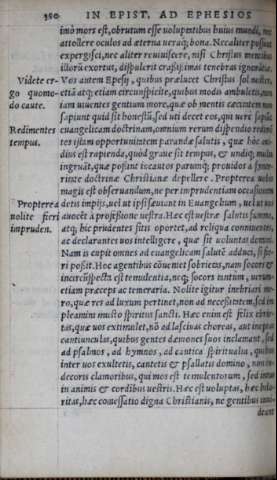 350 IN EPIST. AD EPHESIOS
imò mors est, obrutum esse uoluptatibus huius mundi, nec
attollere oculos ad æterna ueraq; bona. Nec aliter possunt
expergisci, nec aliter reuiuiscere, nisi Christus mentibus
illorū exortus, dispulerit crassissimas tenebras ignorātiæ.
Videte er- Vos autem Ephesij, quibus præluxet Christus sol noster,
go quomo- etiā atq; etiam circunspicite, quibus modis ambuletis, non
do caute. iam uiuentes gentium more, quæ ob mentis cæcitatem non
sapiunt quid sit honestū, sed uti decet eos, qui uere sapiūt
Redimentes euangelicam doctrinam, omnium rerum dispendio redimē
tempus. tes istam opportunitatem parandæ salutis, quæ hoc
dius est rapienda, quòd graue sit tempus, & undiq; mala
ingruāt, quæ possint
rinæ doctrinæ Christianæ depellere. Propterea
magis est obseruandum, ne per imprudentiam occasionem
Propterea detis impijs, uel ut ipsi sæuiant in Euangelium, uel ut uos
nolite fieri auocēt à professione uestra. Hæc est uestræ salutis summa,
impruden. atq; hic prudentes sitis oportet, ad reliqua conniuentes,
ac declarantes uos intelligere, quæ sit uoluntas domini.
Nam is cupit omnes ad euangelicam salutē adduci, si fie-
ri possit. Hoc agentibus cōuenit sobrietas, nam socors &
incircūspecta est temulentia, neq; socors tantum, uerum
etiam præceps ac temeraria. Nolite igitur inebriari me-
ro, quæ res ad luxum pertinet, non ad necessitatem, sed im
pleamini musto spiritus sancti. Hæc enim est felix ebrie-
tas, quæ uos extimulet, nō ad lasciuas choreas, aut ineptas
cantiunculas, quibus gentes dæmones suos inclamant, sed
ad psalmos, ad hymnos, ad cantica spiritualia, quibus
inter uos exultetis, cantetis & psallatis domino, non in-
decoris clamoribus, qui mos est temulentorum, sed intus
in animis & cordibus uestris. Hæc est uoluptas, hæc hila-
ritas, hæc comessatio digna Christianis, ne gentibus inui-
deant